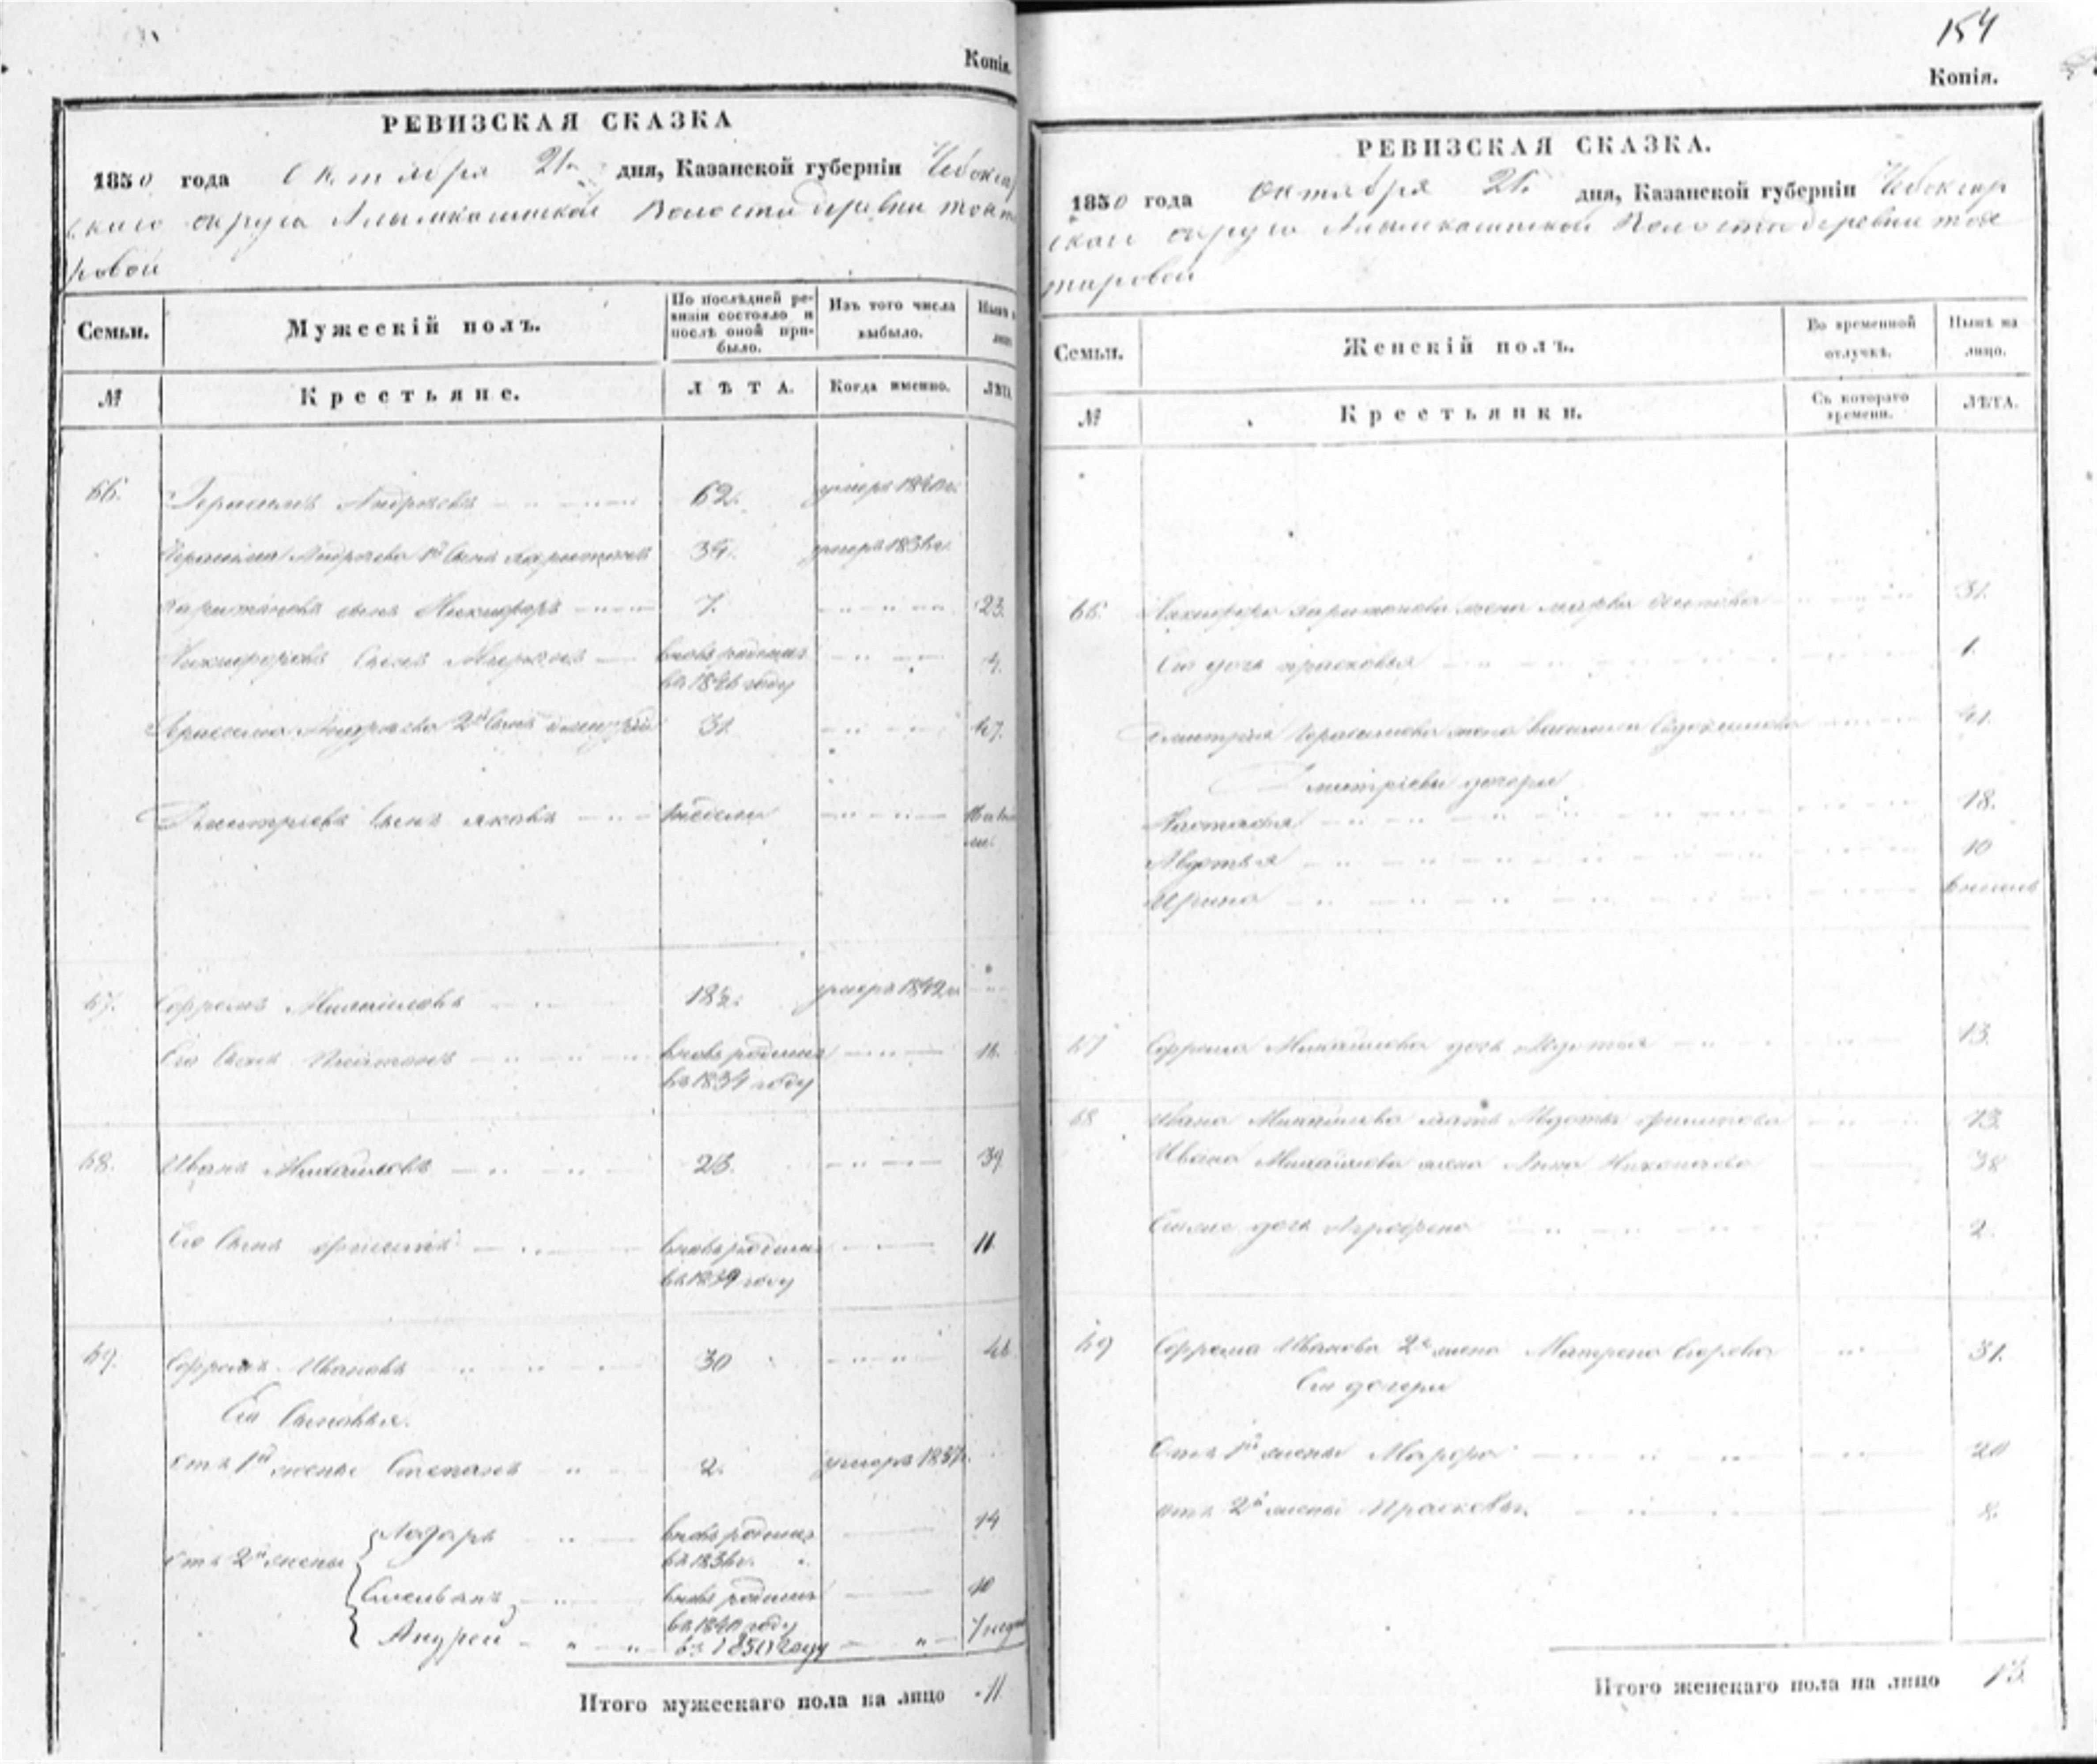 Копія.
РЕВИЗСКАЯ СКАЗКА
1850 года Октября 21 дня, Казанской губерніи Чебоксар
скаго округа Алымкасинской Волости деревни Токта
ровой
Семьи.
Мужескій полъ.
По послѣдней ре-
визіи состояло и
послѣ оной при-
было.
Изъ того числа
выбыло.
Нынѣ
№
Крестьяне.
ЛѢТА.
Когда именно.
ЛѢТА
66. Герасимъ Андреевъ 62. умеръ 1840 г.
Герасима Андреева 1й сынъ Харитонъ 34. умеръ 1836 г.
Харитоновъ сынъ Никифоръ 7. 23.
Никифоровъ сынъ вновь родился 4.
въ 1846 году
Герасима Андреева 2й сынъ Дмитрій 31. 47.
Дмитріевъ сынъ Яковъ недели
67. Ефремъ Михайловъ 18½. умеръ 1849 г.
Его сынъ вновь родился 16.
въ 1834 году
68. Иванъ Михайловъ 23. 39
Его сынъ вновь родился 11
въ 1839 году
69. Ефремъ Ивановъ 30 46
Его сыновья.
отъ 1й жены Степанъ 2. умеръ 1837 г.
отъ 2й жены Лазарь вновь родился 14
въ 1836 г.
Селиванъ вновь родился 10
въ 1840 году
Андрей въ 1850 году 7 недель
Итого мужескаго пола на лицо 11
154
Копія.
РЕВИЗСКАЯ СКАЗКА.
1850 года Октября 21 дня, Казанской губерніи Чебоксар
скаго округа Алымкасинской Волости деревни Ток
таровой
Семьи.
Женскій полъ.
Во временной
отлучкѣ.
Нынѣ на
лицо.
№
Крестьянки.
Съ котораго
времени.
ЛѢТА.
66. Никифора Харитонова жена Марфа 31.
Его дочь Прасковья 1.
Дмитрія Герасимова жена Василиса Евдокимова 41.
Дмитріевы дочери
Настасья 18.
Авдотья 10
Ирина
67 Ефрема Михайлова дочь Авдотья 13.
68 Ивана Михайлова мать Авдотья 73.
Ивана Михайлова жена Анна Николаева 38
дочь Аграфена 2.
69 Ефрема Иванова 2я жена Матрена Егорова 31.
Его дочери
Отъ 1й жены Марфа 20
отъ 2й жены Прасковья 8.
Итого женскаго пола на лицо 13